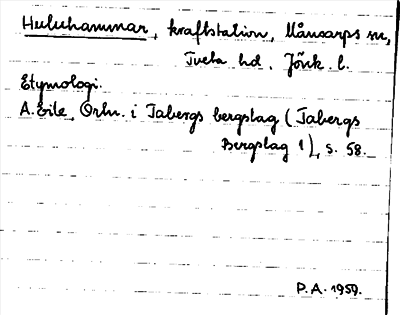 Huluhammar, kraftstation, Månsarps sn,
Tveta hd. Jönk. l.
Etymologi.
A. Eile, Ortn. i Tabergs bergslag (Tabergs
Bergslag 1), s. 58.
P.A. 1959.